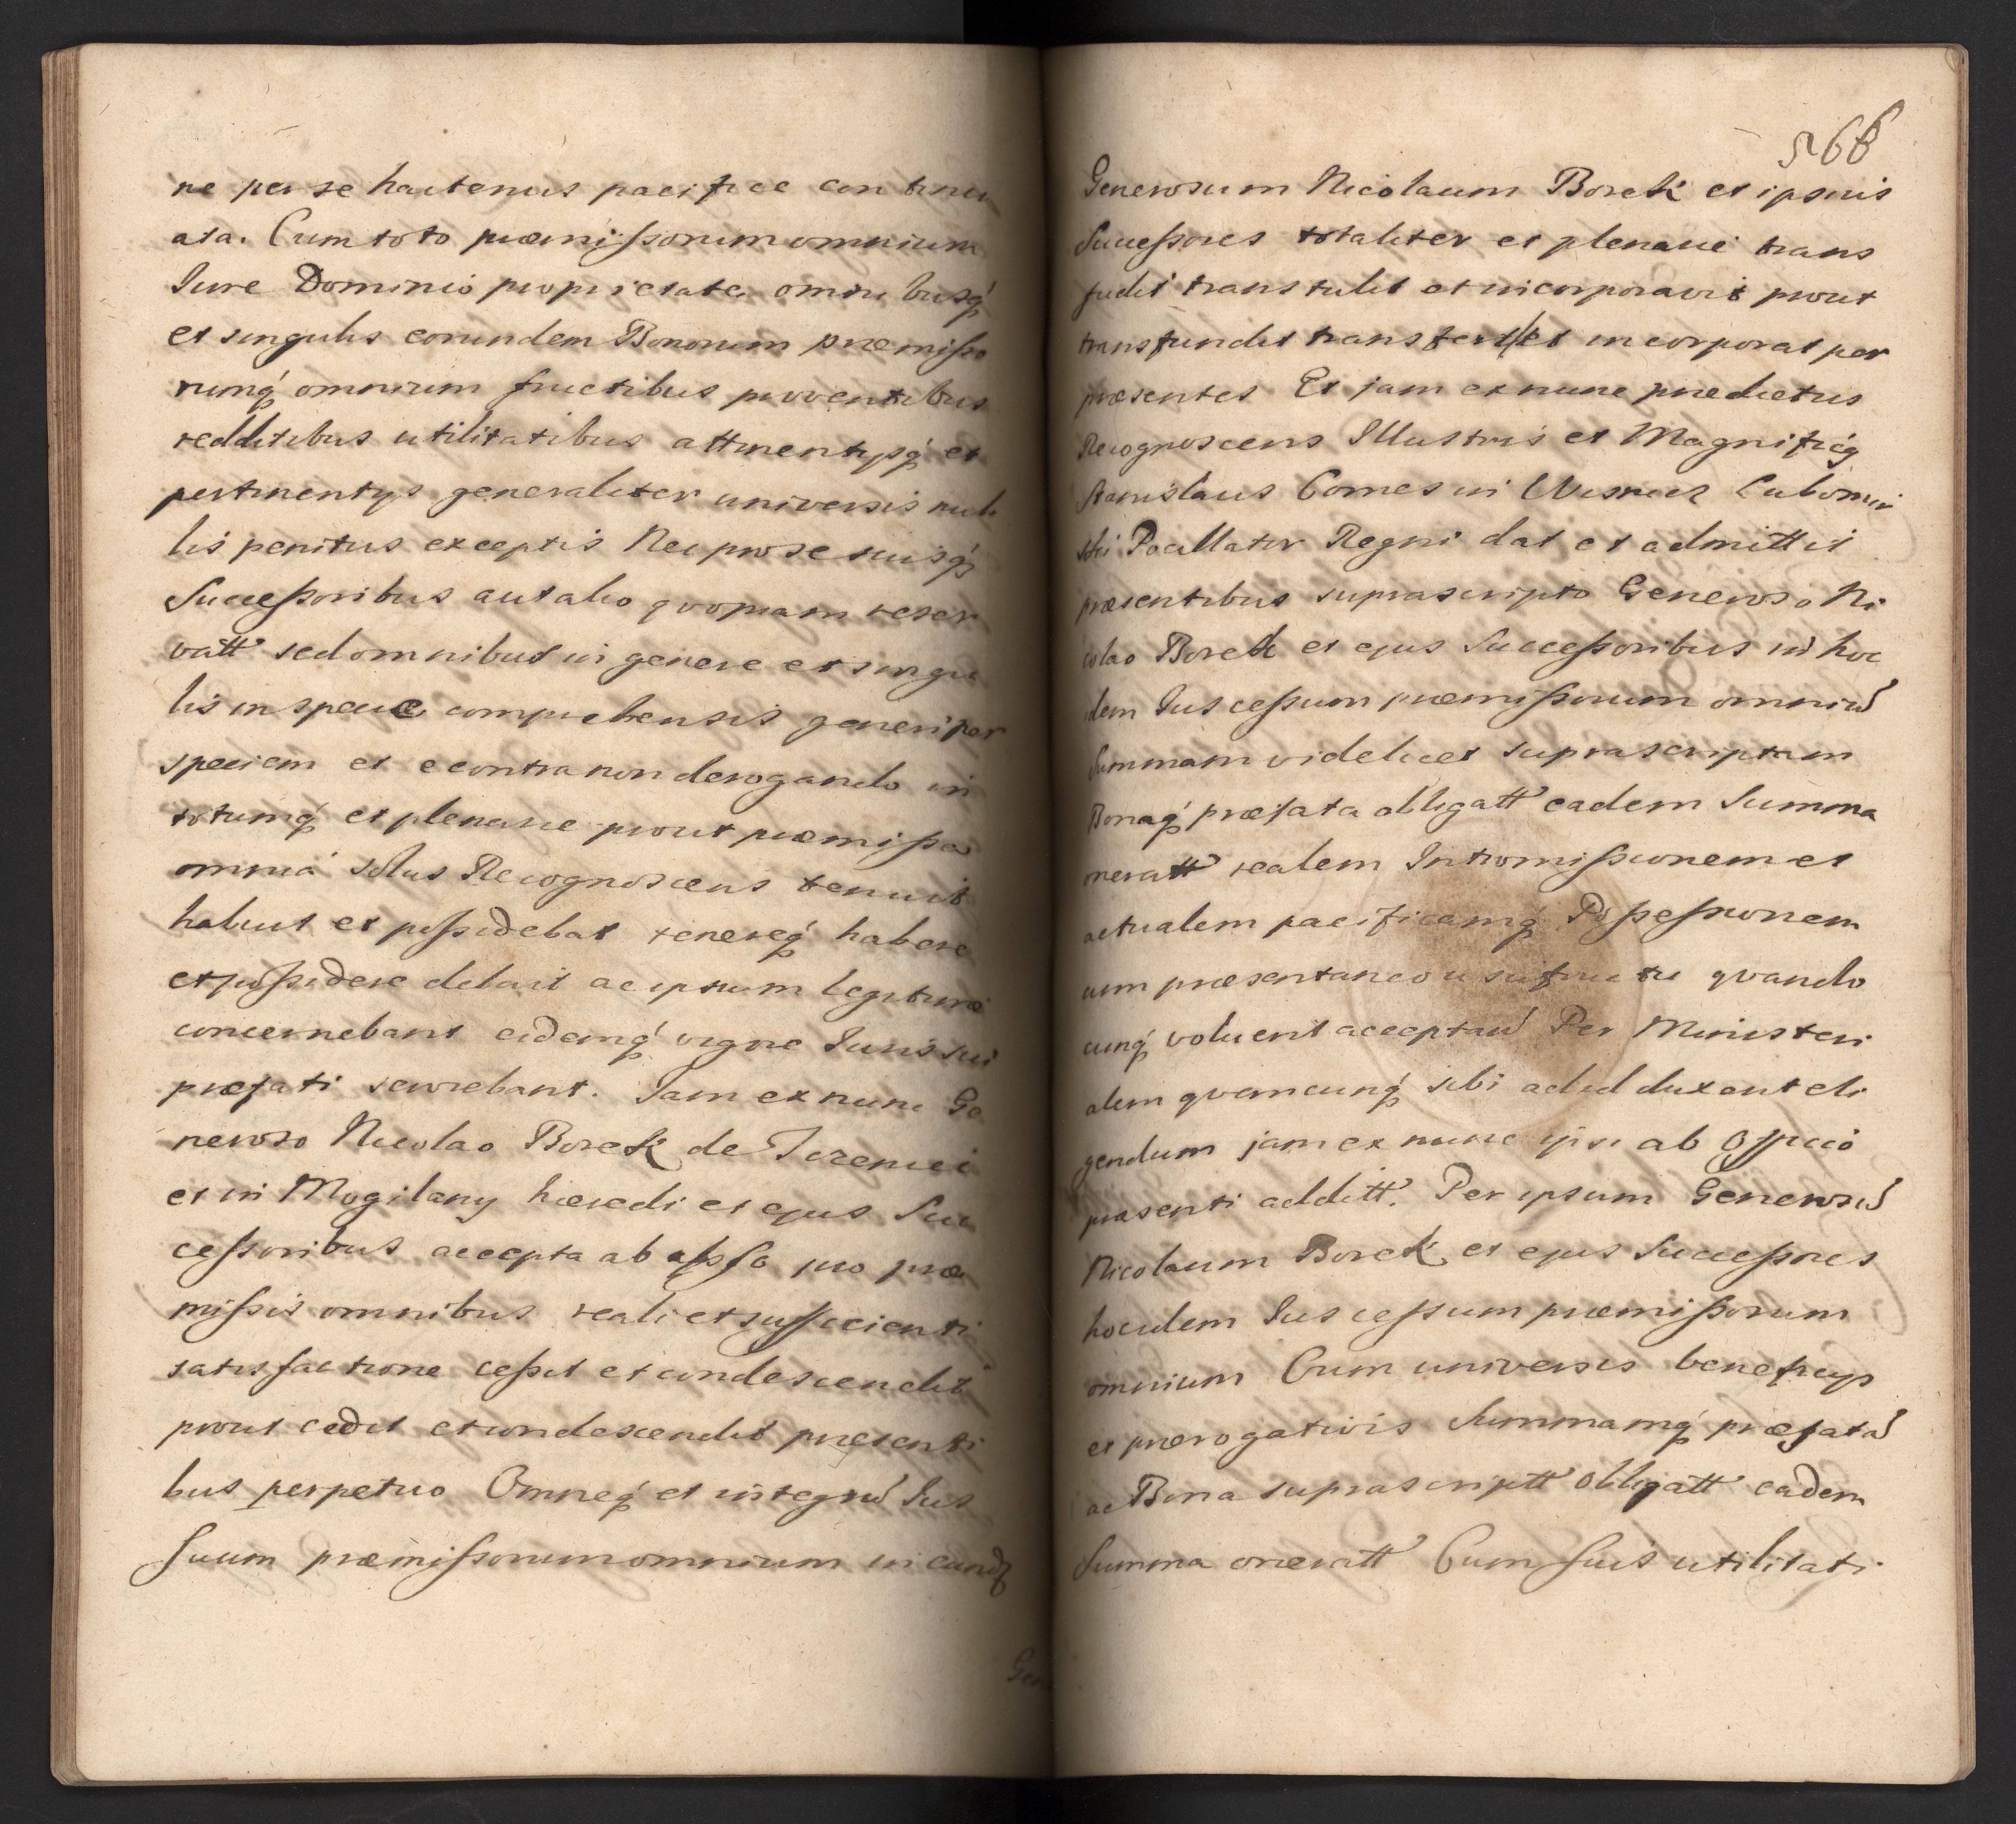 ne per se hactenus pacifice continu
ata. Cum toto præmissorum omnium
Iure Dominio proprietate omnibusq́
et singulis eorundem Bonorum præmisso
rumq́ omnium fructibus proventibus
redditibus utilitatibus attinentysq́ et
pertinentys generaliter universis nul
lis penitus exceptis Nec pro se suisq́
Successoribus aut alio qvopiam reser
vatt sed omnibus in genere et singu
lis in specie comprehensis generi per
speciem et econtra non derogando in
totumq́ et plenarie prout præmissa
omnia solus Recognoscens tenuit
habuit et possidebat tenereq́ habere
et possidere debuit ac ipsum legitime
concernebant eidemq́ vigore Iuris sui
præfati serviebant. Iam ex nunc Ge
neroso Nicolao Borek de
et in Mogilany hæredi et ejus Suc
cessoribus accepta ab ipso pro præ
missis omnibus reali et sufficienti
satisfactione cessit et condescendit
prout cedit et condescendit præsenti
bus perpetuo Omneq́ et integrū Ius
Suum præmissorum omnium in eund
Gen
566
Generosum Nicolaum Borek et ipsius
Successores totaliter et plenarie trans
fudit transtulit et incorporavit prout
transfundit transfert et incorporat per
præsentes Et jam ex nunc prædictus
Recognoscens Illustris et Magnificq
Stanislaus Comes in Wisnicz Lubomir
ski Pocillator Regni dat et admittit
præsentibus suprascripto Generoso Ni
colao Borek et ejus Successoribus in hoc
idem Ius cessum præmissorum omniū
Summam videlicet suprascriptam
Bonaq́ præfata obligatt eadem Summa
oneratt realem Intromissionem et
actualem pacificamq́ Possessionem
cum præsentaneo usufructu qvando
cunq́ voluerit acceptaū Per Ministeri
alem qvemcunq́ sibi ad id duxerit eli
gendum jam ex nunc ipsi ab Officio
præsenti additt. Per ipsum Generosū
Nicolaum Borek et ejus Successores
hoc idem Ius cessum præmissorum
omnium Cum universis beneficys
et prærogativis Summamq́ præfatā
ac Bona suprascriptt obligatt eadem
Summa oneratt Cum suis utilitati